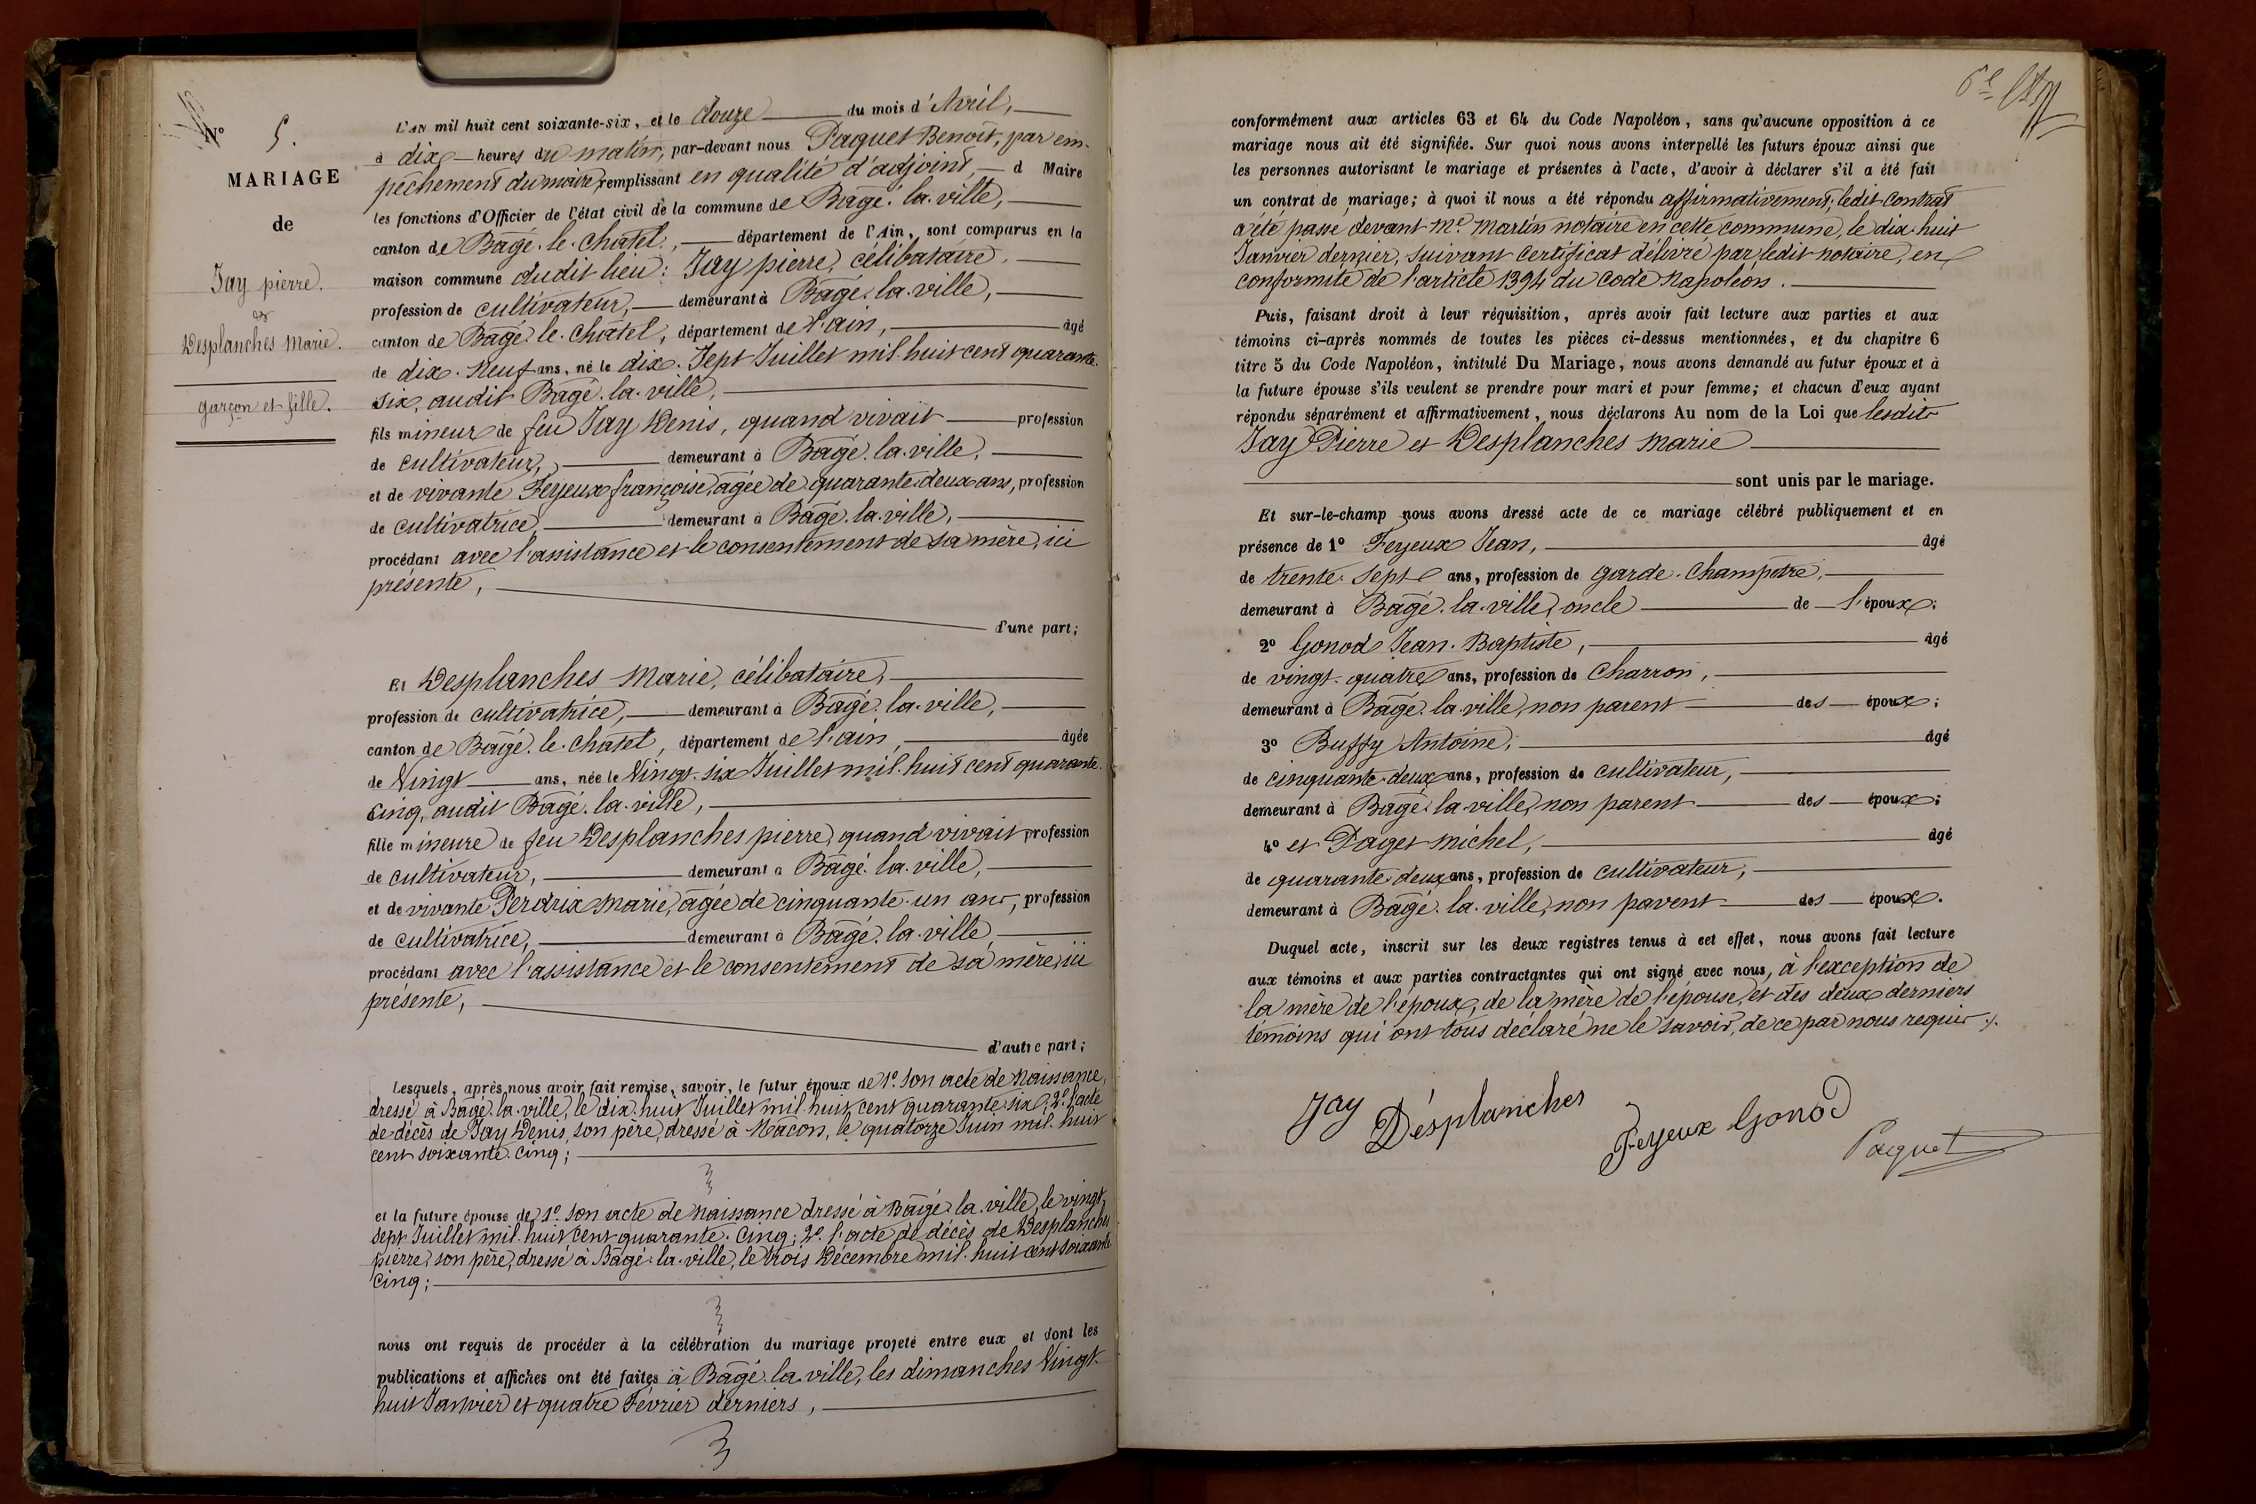 N° 5.
MARIAGE
de
Jay pierre.
et
Desplanches Marie.
garçon et fille.
L'AN mil huit cent soixante-six, et le douze du mois d'Avril,
à dix heures du matin, par-devant nous Paquet Benoit, par em-
pêchement du maire, remplissant en qualité d'adjoint, d Maire
les fonctions d'Officier de l'état civil de la commune de Bâgé-la-ville,
canton de Bâgé-le-Chatel, département de l'Ain, sont comparus en la
maison commune dudit lieu: Jay pierre, célibataire,
profession de cultivateur, demeurant à Bâgé-la-ville,
canton de Bâgé-le-Châtel, département de l'ain, âgé
de dix-neuf ans, né le dix-Sept Juillet mil-huit cent quarante-
six, audit Bâgé-la-ville,
fils mineur de feu Jay Denis, quand vivait profession
de cultivateur, demeurant à Bâgé-la-ville,
et de vivante Feyeux françoise, âgée de quarante-deux ans, profession
de cultivatrice, demeurant à Bâgé-la-ville,
procédant avec l'assistance et le consentement de sa mère, ici
présente,
d'une part;
Et Desplanches Marie, célibataire,
profession de cultivatrice, demeurant à Bâgé-la-ville,
canton de Bâgé-le-chatel, département de l'ain, âgée
de Vingt ans, née le Vingt-six Juillet mil-huit cent quarante-
Cinq, audit Bâgé-la-ville,
fille mineure de feu Desplanches pierre, quand vivait profession
de cultivateur, demeurant à Bâgé-la-ville,
et de vivante Perdrix Marie, âgée de cinquante-un ans, profession
de cultivatrice, demeurant à Bâgé-la-ville,
procédant avec l'assistance et le consentement de sa mère, ici
présente,
d'autre part;
Lesquels, après nous avoir fait remise, savoir, le futur époux de 1° Son acte de Naissance,
dressé à Bâgé-la-ville, le dix-huit Juillet mil-huit cent quarante-six; 2° l'acte
de décès de Jay Denis, son père, dressé à Macon, le quatorze Juin mil-huit
cent soixante-Cinq;
et la future épouse de 1° Son acte de Naissance dressé à Bâgé-la-ville, le vingt-
sept Juillet mil-huit cent quarante-Cinq; 2° l'acte de décès de Desplanches
pierre, son père, dressé à Bâgé-la-ville, le trois Décembre mil-huit cent soixante
cinq;
nous ont requis de procéder à la célébration du mariage projeté entre eux et dont les
publications et affiches ont été faites à Bâgé-la-ville, les dimanches Vingt-
huit Janvier et quatre Février derniers,
conformément aux articles 63 et 64 du Code Napoléon, sans qu'aucune opposition à ce
mariage nous ait été signifiée. Sur quoi nous avons interpellé les futurs époux ainsi que
les personnes autorisant le mariage et présentes à l'acte, d'avoir à déclarer s'il a été fait
un contrat de mariage; à quoi il nous a été répondu affirmativement, ledit Contrat
a été passé devant Me. Martin notaire en cette commune, le dix-huit
Janvier dernier, suivant certificat délivré par ledit notaire, en
conformité de l'article 1394 du Code Napoléon.
Puis, faisant droit à leur réquisition, après avoir fait lecture aux parties et aux
témoins ci-après nommés de toutes les pièces ci-dessus mentionnées, et du chapitre 6
titre 5 du Code Napoléon, intitulé Du Mariage, nous avons demandé au futur époux et à
la future épouse s'ils veulent se prendre pour mari et pour femme; et chacun d'eux ayant
répondu séparément et affirmativement, nous déclarons Au nom de la Loi que lesdits
Jay Pierre et Desplanches Marie
sont unis par le mariage.
Et sur-le-champ nous avons dressé acte de ce mariage célébré publiquement et en
présence de 1° Feyeux Jean, âgé
de trente-Sept ans, profession de garde-Champêtre,
demeurant à Bâgé-la-ville, oncle de l'époux;
2° Gonod Jean-Baptiste, âgé
de vingt-quatre ans, profession de Charron,
demeurant à Bâgé-la-ville, non parent des époux;
3° Buffy Antoine, âgé
de cinquante-deux ans, profession de cultivateur,
demeurant à Bâgé-la-ville, non parent des époux;
4° et Paget Michel, âgé
de quarante-deux ans, profession de cultivateur,
demeurant à Bâgé-la-ville, non parent des époux.
Duquel acte, inscrit sur les deux registres tenus à cet effet, nous avons fait lecture
aux témoins et aux parties contractantes qui ont signé avec nous, à l'exception de
la mère de l'époux, de la mère de l'épouse, et des deux derniers
témoins qui ont tous déclaré ne le savoir, de ce par nous requis.
Jay Désplanches
Feyeux Gonod
Paquet